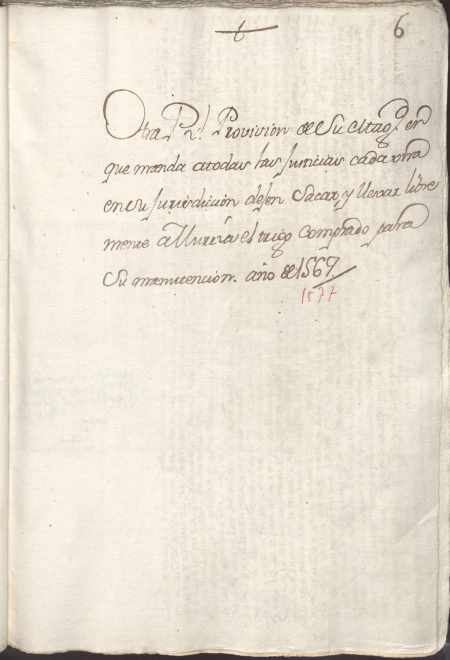 6 6
Otra Rl. Provision de Su Magd. en
que manda a todas las Justicias cada vna
en su jurisdicion dejen Sacar, y llevar libre
mente a Murcia el trigo Comprado para
Su manutencion. año de 1567.
1577